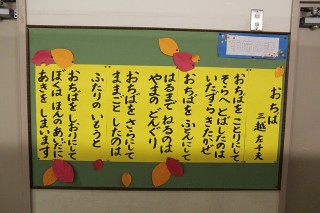 おちば
三越左千夫
おちばを ことりにして
そらへ とばしたのは
いたずら きたかぜ
おちばを ふとんにして
はるまで ねるのは
やまの どんぐり
おちばを さらにして
ままごと したのは
ふたりの いもうと
おちばを しおりにして
ぼくは ほんの あいだに
あきを しまいます